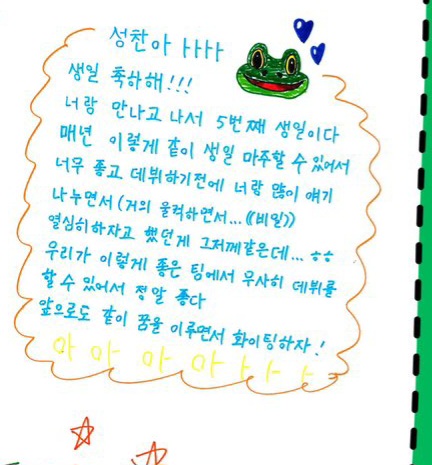 성찬아 ㅏㅏㅏㅏ
생일 축하해!!!
너랑 만나고 나서 5번째 생일이다
매년 이렇게 같이 생일 마주할 수 있어서
너무 좋고 데뷔하기전에 너랑 많이 얘기
나누면서 (거의 울먹하면서...((비밀))
열심히하자고 했던게 그저께같은데... ㅎㅎ
우리가 이렇게 좋은 팀에서 무사히 데뷔를
할 수 있어서 정말 좋다
앞으로도 같이 꿈을 이루면서 화이팅하자!
아 아 아 아 ㅏ ㅏ ㅏ